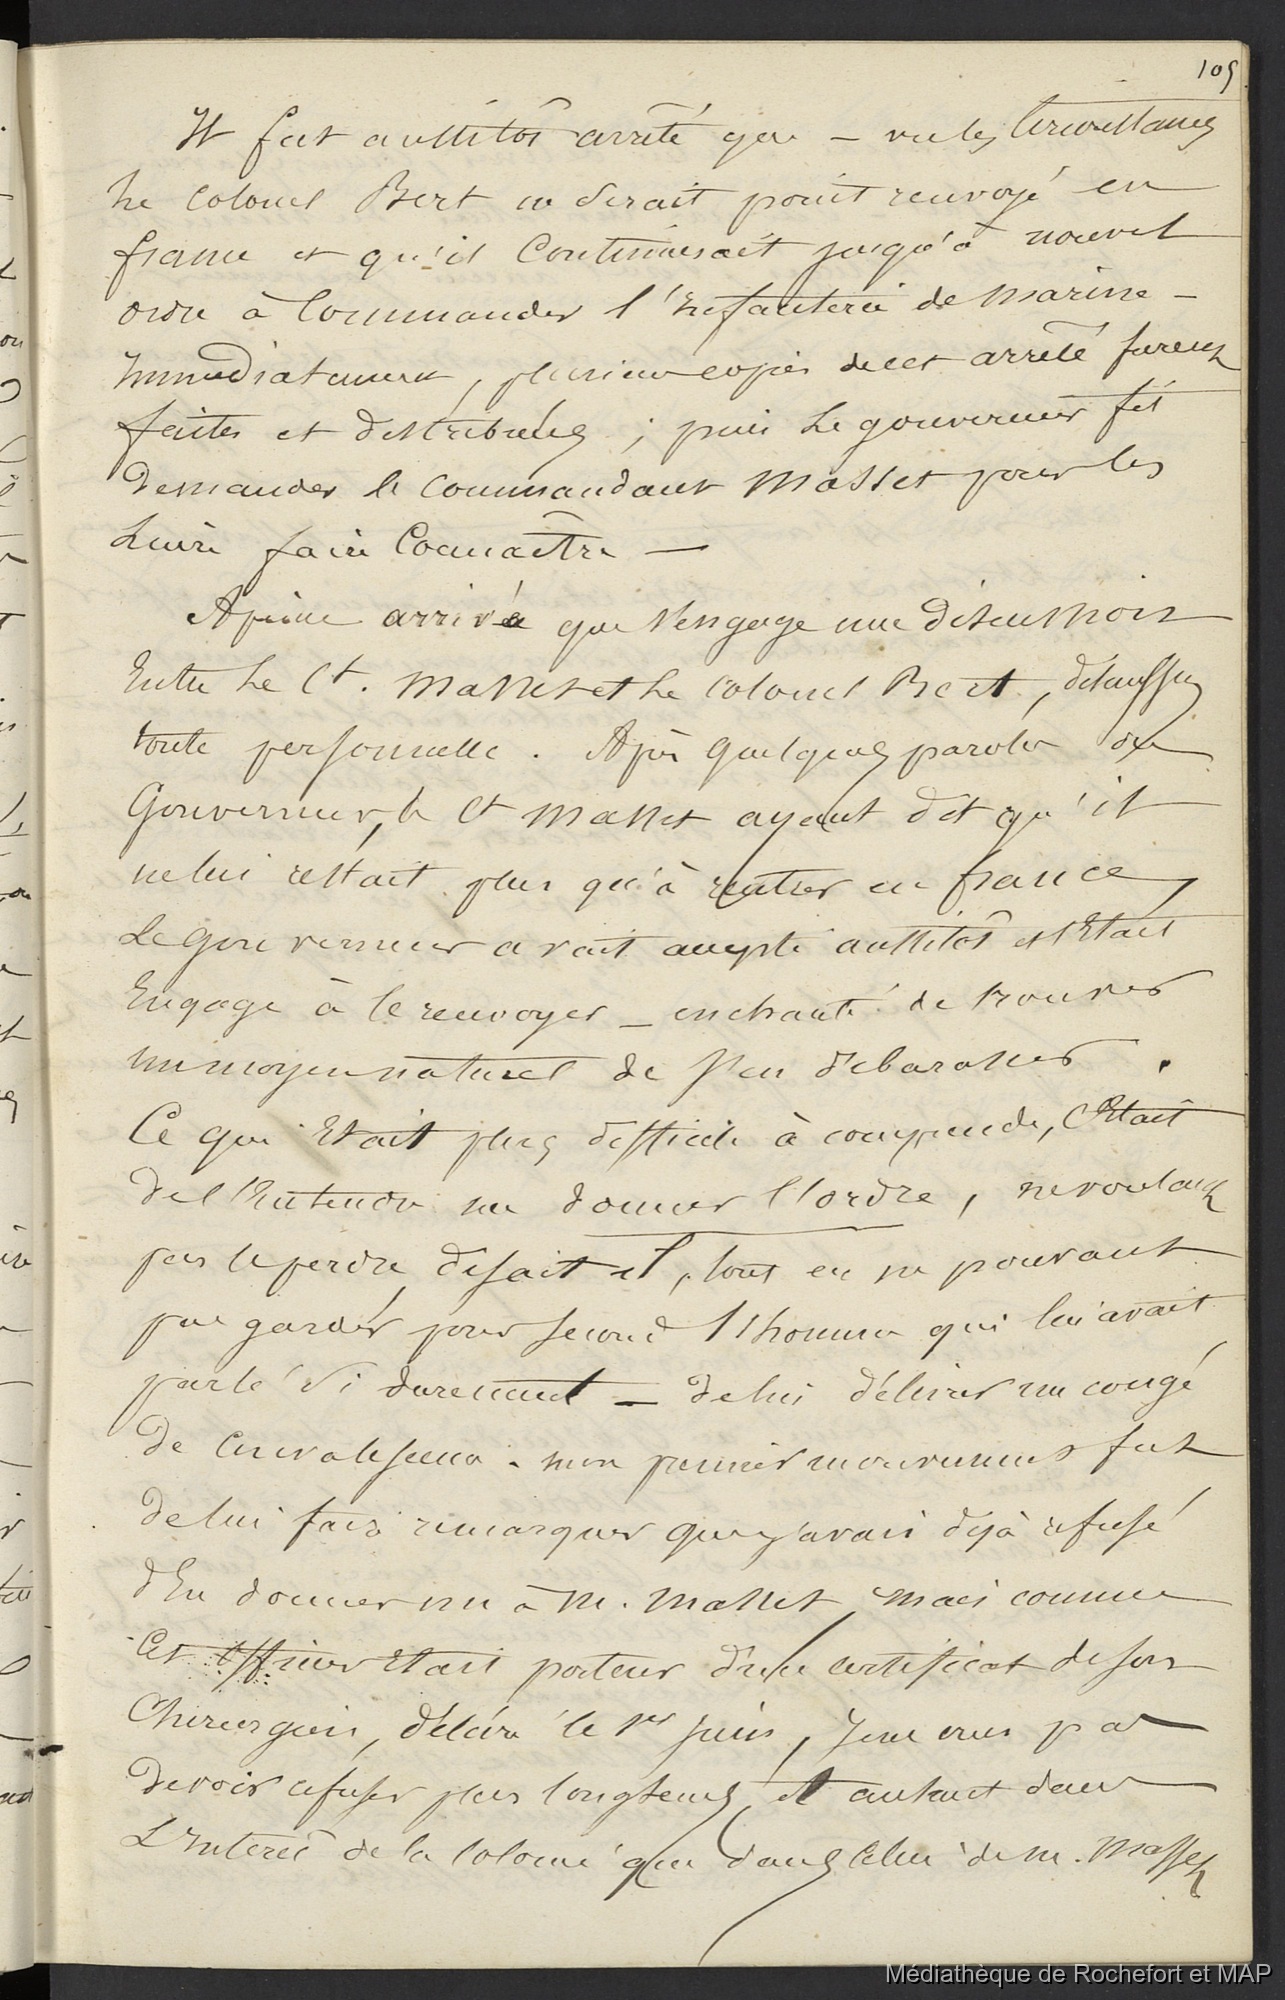 105
Il fut aussitôt arrêté que – vu les circonstances
le Colonel Bert ne serait point renvoyé en
france et qu'il Continuerait jusqu'à nouvel
ordre à Commander l'Infanterie de Marine –
Immédiatement, plusieurs copies de cet arrêté furent
faites et distribuées ; puis le gouverneur fit
demander le Commandant Masset pour les
lui faire Connaître —
A peine arrivé que s'engage une discussion
Entre le Ct. Masset et le Colonel Bert, discussion
toute personnelle. Après quelques paroles du
Gouverneur, le Ct Masset ayant dit qu'il
ne lui restait plus qu'à rentrer en france,
Le gouverneur avait accepté aussitôt et s'Etait
Engagé à le renvoyer – enchanté de trouver
un moyen naturel de s'en débarasser.
Ce qui Etait plus difficile à comprendre, c'Etait
de l'Entendre me donner l'ordre, ne voulant
pas le perdre disait-il, tout en ne pouvant
pas garder pour second l'homme qui lui avait
parlé si durement – de lui délivrer un congé
de Convalescence. mon premier mouvement fut
de lui faire remarquer que j'avais déjà refusé
d'En donner un à M. Masset, mais comme
cet officier Etait porteur d'un certificat de son
Chirurgien, délivré le 1er Juin, Je ne crus pas
devoir refuser plus longtems, et autant dans
L'Interêt de la Colonie que dans celui de M. Masset
Médiathèque de Rochefort et MAP